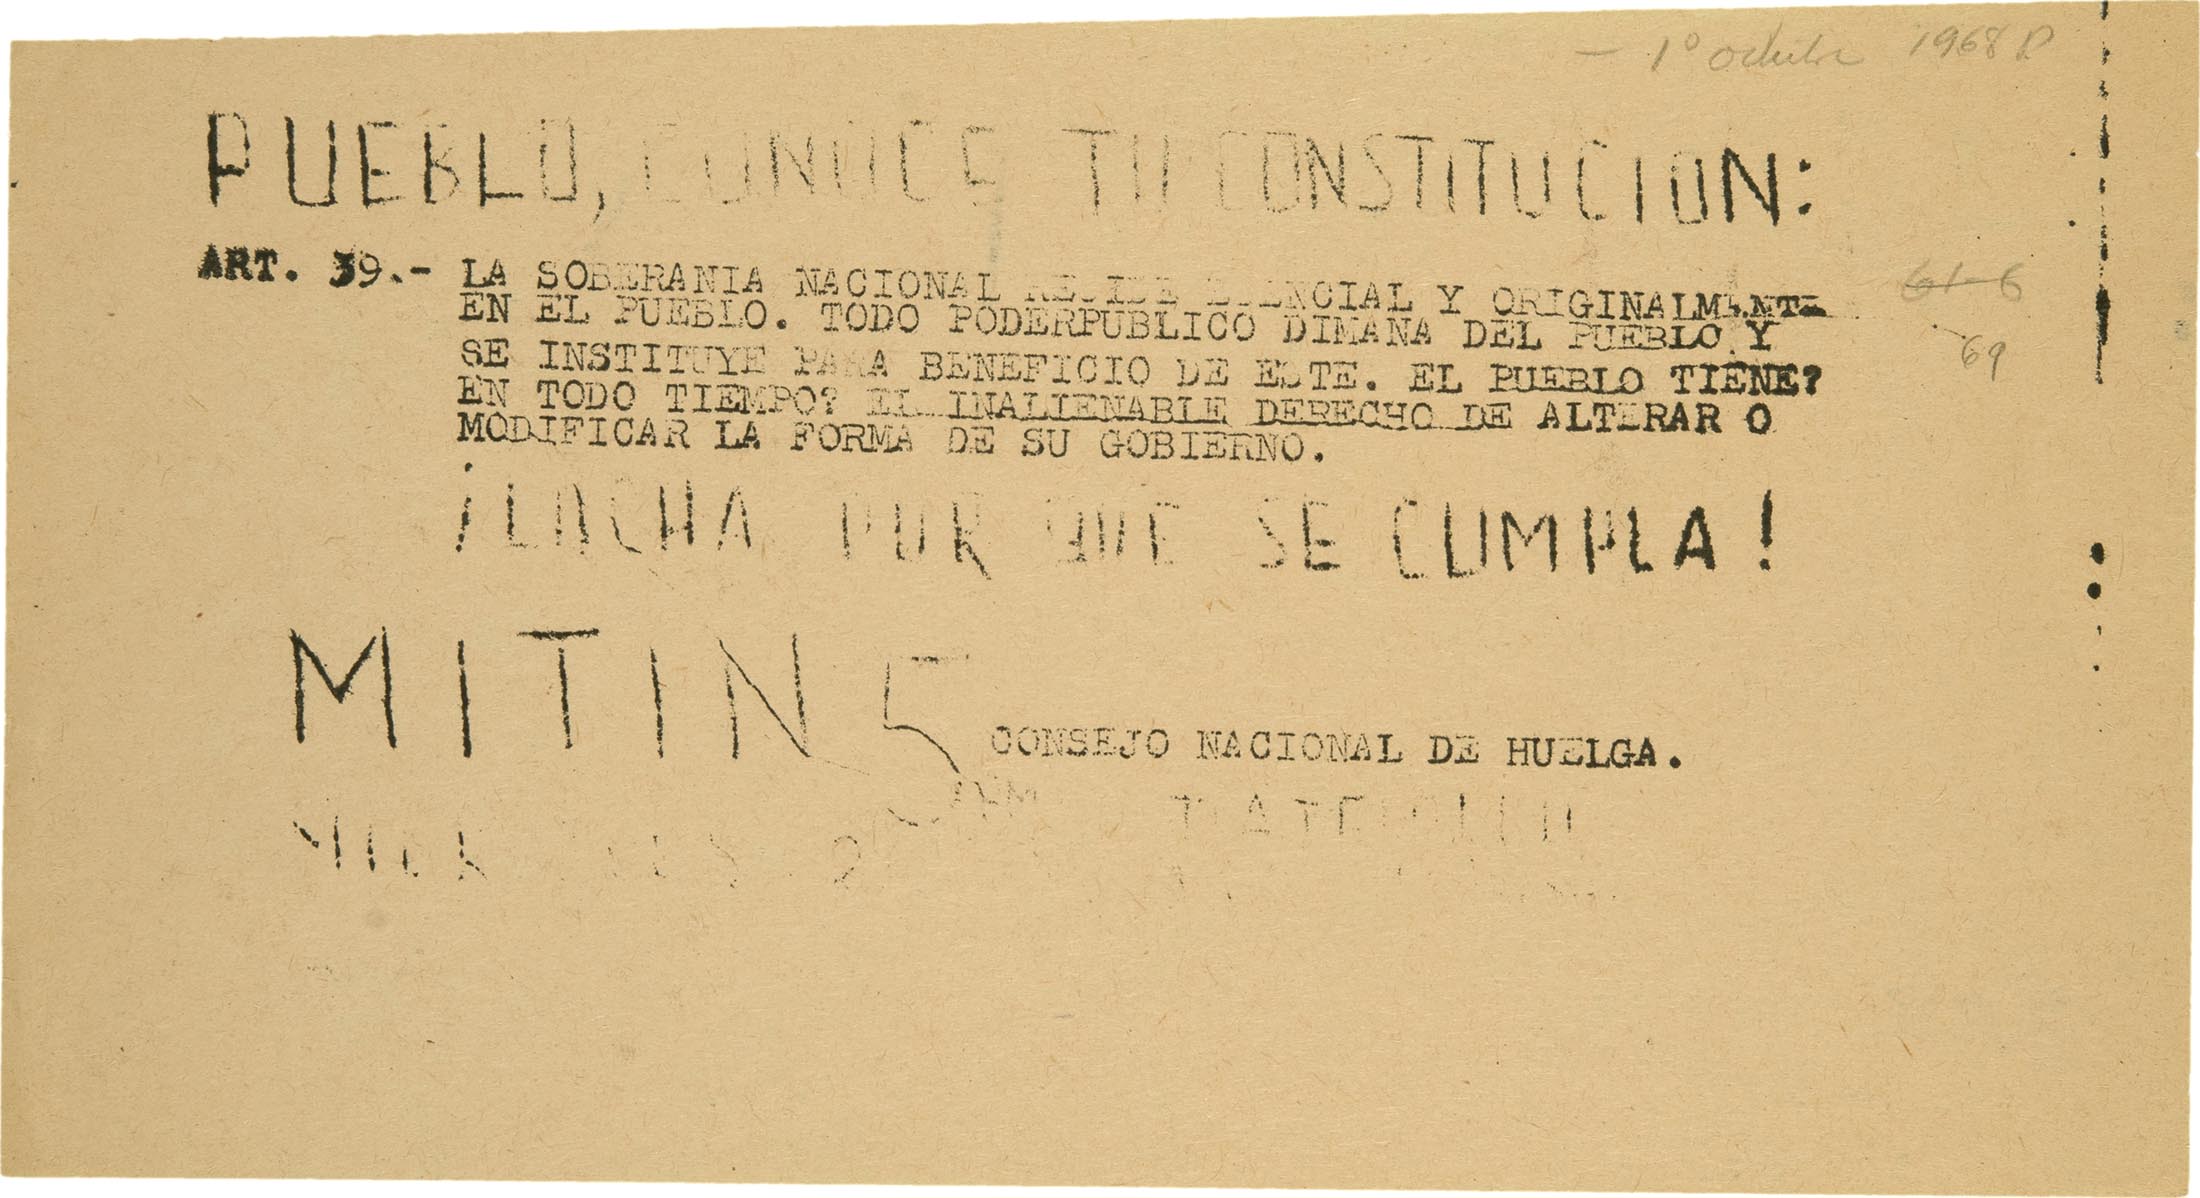 - 1º octubre 1968
PUEBLO, CONOCE TU CONSTITUCION:
ART. 39.- LA SOBERANIA NACIONAL RESIDE ESENCIAL Y ORIGINALMENTE
EN EL PUEBLO. TODO PODERPUBLICO DIMANA DEL PUEBLO Y
SE INSTITUYE PARA BENEFICIO DE ESTE. EL PUEBLO TIENE?
EN TODO TIEMPO? EL INALIENABLE DERECHO DE ALTERAR O
MODIFICAR LA FORMA DE SU GOBIERNO.
61-6
69
¡LUCHA POR QUE SE CUMPLA!
MITIN 5
CONSEJO NACIONAL DE HUELGA.
TLATELOLCO
MIERCOLES 2